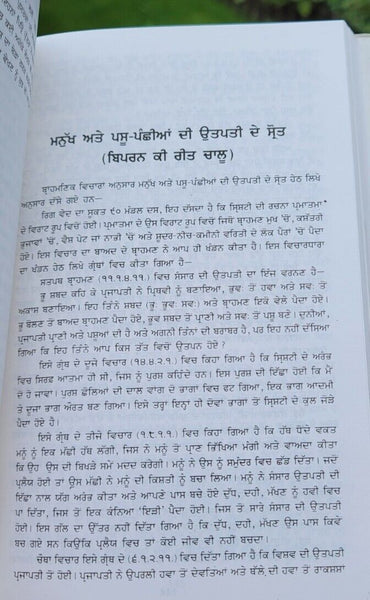 ਮਨੁੱਖ ਅਤੇ ਪਸੂ-ਪੰਛੀਆਂ ਦੀ ਉਤਪਤੀ ਦੇ ਸ੍ਰੋਤ
(ਬਿਪਰਨ ਕੀ ਰੀਤ ਚਾਲੂ)
ਬ੍ਰਾਹਮਣਿਕ ਵਿਚਾਰਾ ਅਨਸਾਰ ਮਨੁੱਖ ਅਤੇ ਪਸੂ-ਪੰਛੀਆਂ ਦੀ ਉਤਪਤੀ ਦੇ ਸ੍ਰੋਤ ਹੇਠ ਲਿਖੇ
ਅਨਸਾਰ ਦੱਸੇ ਗਏ ਹਨ—
ਰਿਗ ਵੇਦ ਦਾ ਸੂਕਤ ੯੦ ਮੰਡਲ ਦਸ, ਇਹ ਦੱਸਦਾ ਹੈ ਕਿ ਸ੍ਰਿਸ਼ਟੀ ਦੀ ਰਚਨਾ ਪ੍ਰਮਾਤਮਾ
ਦੇ ਵਿਰਾਟ ਰੂਪ ਵਿਚੋਂ ਹੋਈ। ਪ੍ਰਮਾਤਮਾ ਦੇ ਉਸ ਵਿਰਾਟ ਰੂਪ ਵਿਚੋਂ ਜਿਥੇ ਬ੍ਰਾਹਮਣ ਮੁਖ 'ਚੋਂ, ਕਸ਼ੱਤਰੀ
ਭੁਜਾਵਾਂ 'ਚੋਂ, ਵੈਸ਼ ਪੇਟ ਜਾਂ ਨਾਭੀ 'ਚੋਂ ਅਤੇ ਸ਼ੂਦਰ-ਨੀਚ-ਕਮੀਨੀ ਵਰਿਤੀ ਦੇ ਲੋਕ ਪੈਰਾਂ 'ਚੋਂ ਪੈਦਾ
ਹੋਏ। ਇਸ ਵਿਚਾਰ ਦਾ ਬਾਅਦ ਦੇ ਬ੍ਰਾਹਮਣ ਨੇ ਆਪ ਹੀ ਖੰਡਨ ਕੀਤਾ ਹੈ। ਇਸ ਵਿਚਾਰਧਾਰਾ
ਦਾ ਖੰਡਨ ਹੇਠ ਲਿਖੇ ਗ੍ਰੰਥਾਂ ਵਿਚ ਕੀਤਾ ਗਿਆ ਹੈ—
ਸਤਪਥ ਬ੍ਰਾਹਮਣ (੧੧.੧.੪.੧੧.) ਵਿਚ ਸੰਸਾਰ ਦੀ ਉਤਪਤੀ ਦਾ ਇੰਜ ਵਰਨਣ ਹੈ—
ਭੂ ਸਬਦ ਕਹਿ ਕੇ ਪ੍ਰਜਾਪਤੀ ਨੇ ਪ੍ਰਿਥਵੀ ਨੂੰ ਬਣਾਇਆ, ਭੁਵਃ ਤੋਂ ਹਵਾ ਅਤੇ ਸਵਃ ਤੋਂ
ਅਕਾਸ਼ ਬਣਾਇਆ। ਇਹ ਤਿੰਨੇ ਸਬਦ (ਭੂਃ ਭੁਵਃ ਸਵਃ) ਅਤੇ ਬ੍ਰਾਹਮਣ ਇਕੋ ਵੇਲੇ ਪੈਦਾ ਹੋਏ।
ਭੂ ਬੋਲਣ ਤੋਂ ਬਾਅਦ ਬ੍ਰਾਹਮਣ ਪੈਦਾ ਹੋਏ, ਭੁਵ ਸਬਦ ਤੋਂ ਪ੍ਰਾਣੀ ਅਤੇ ਸਵਃ ਤੋਂ ਪਸ਼ੂ ਬਣੇ। ਦੁਨੀਆਂ,
ਪ੍ਰਜਾਪਤੀ ਪ੍ਰਾਣੀ ਅਤੇ ਪਸ਼ੂਆਂ ਦੀ ਹੈ ਅਤੇ ਅਗਨੀ ਤਿੰਨਾਂ ਦੀ ਬਰਾਬਰ ਹੈ, ਪਰ ਇਹ ਨਹੀਂ ਦੱਸਿਆ
ਗਿਆ ਕਿ ਇਹ ਤਿੰਨੇ ਆਪ ਕਿਸ ਤੱਤ ਵਿਚੋਂ ਉਤਪੰਨ ਹੋਏ ?
ਇਸੇ ਗ੍ਰੰਥ ਦੇ ਦੂਜੇ ਵਿਚਾਰ (੧੪.੪.੨.੧.) ਵਿਚ ਕਿਹਾ ਗਿਆ ਹੈ ਕਿ ਸ੍ਰਿਸ਼ਟੀ ਦੇ ਅਰੰਭ
ਵਿਚ ਸਿਰਫ਼ ਆਤਮਾ ਹੀ ਸੀ, ਜਿਸ ਨੂੰ ਪੁਰਸ਼ ਕਹਿੰਦੇ ਹਨ। ਇਸ ਪੁਰਸ਼ ਦੀ ਇੱਛਾ ਹੋਈ ਕਿ ਮੈਂ
ਦੋ ਹੋ ਜਾਵਾਂ। ਪੁਰਸ਼ ਛੋਲਿਆਂ ਦੀ ਦਾਲ ਵਾਂਗ ਦੋ ਭਾਗਾਂ ਵਿਚ ਫਟ ਗਿਆ, ਇਕ ਭਾਗ ਆਦਮੀ
ਤੇ ਦੂਜਾ ਭਾਗ ਔਰਤ ਬਣ ਗਿਆ। ਇਸੇ ਤਰ੍ਹਾਂ ਇਨ੍ਹਾਂ ਹੀ ਦੋਵਾਂ ਭਾਗਾਂ ਤੋਂ ਸ੍ਰਿਸ਼ਟੀ ਦੇ ਕੁਲ ਜੋੜੇ
ਪੈਦਾ ਹੋਏ ਹਨ।
ਇਸੇ ਗ੍ਰੰਥ ਦੇ ਤੀਜੇ ਵਿਚਾਰ (੧.੮.੧.੧.) ਵਿਚ ਕਿਹਾ ਗਿਆ ਹੈ ਕਿ ਹੱਥ ਧੋਂਦੇ ਵਕਤ
ਮਨੂੰ ਨੂੰ ਇਕ ਮੱਛੀ ਹੱਥ ਲੱਗੀ, ਜਿਸ ਨੇ ਮਨੂੰ ਤੋਂ ਪ੍ਰਾਣ ਭਿੱਖਿਆ ਮੰਗੀ ਅਤੇ ਵਾਅਦਾ ਕੀਤਾ
ਕਿ ਉਹ ਉਸ ਦੀ ਬਿਖੜੇ ਸਮੇਂ ਮਦਦ ਕਰੇਗੀ। ਮਨੂੰ ਨੇ ਉਸ ਨੂੰ ਸਮੁੰਦਰ ਵਿਚ ਛੱਡ ਦਿੱਤਾ। ਜਦੋਂ
ਪ੍ਰਲੋਯ ਹੋਈ ਤਾਂ ਉਸ ਮੱਛੀ ਨੇ ਮਨੂੰ ਦੀ ਕਿਸ਼ਤੀ ਨੂੰ ਬਚਾ ਲਿਆ। ਮਨੂੰ ਨੇ ਸੰਸਾਰ ਉਤਪਤੀ ਦੀ
ਇੱਛਾ ਨਾਲ ਯੱਗ ਅਰੰਭ ਕੀਤਾ ਅਤੇ ਆਪਣੇ ਪਾਸ ਬਚੇ ਹੋਏ ਦੁੱਧ, ਦਹੀ, ਮੱਖਣ ਨੂੰ ਹਵੀ ਵਿਚ
ਪਾ ਦਿੱਤਾ, ਜਿਸ ਤੋਂ ਇਕ ਕੰਨਿਆ 'ਇੜੀ' ਪੈਦਾ ਹੋਈ। ਜਿਸ ਤੋਂ ਸਾਰੇ ਸੰਸਾਰ ਦੀ ਉਤਪਤੀ
ਹੋਈ। ਇਸ ਗੱਲ ਦਾ ਉੱਤਰ ਨਹੀਂ ਦਿੱਤਾ ਗਿਆ ਹੈ ਕਿ ਦੁੱਧ, ਦਹੀ, ਮੱਖਣ ਉਸ ਪਾਸ ਕਿਵੇਂ
ਬਚ ਗਏ ਸਨ ਕਿਉਂਕਿ ਪ੍ਰਲੋਯ ਵਿਚ ਤਾਂ ਕੋਈ ਜੀਵ ਵੀ ਨਹੀਂ ਬਚਦਾ।
ਚੌਥਾ ਵਿਚਾਰ ਇਸੇ ਗ੍ਰੰਥ ਦੇ (੬.੧.੨.੧੧.) ਵਿਚ ਦਿੱਤਾ ਗਿਆ ਹੈ ਕਿ ਵਿਸ਼ਵ ਦੀ ਉਤਪਤੀ
ਪ੍ਰਜਾਪਤੀ ਤੋਂ ਹੋਈ। ਪ੍ਰਜਾਪਤੀ ਨੇ ਉਪਰਲੀ ਹਵਾ ਤੋਂ ਦੇਵਤਿਆਂ ਅਤੇ ਥੱਲੇ ਦੀ ਹਵਾ ਤੋਂ ਰਾਕਸ਼ਸਾਂ